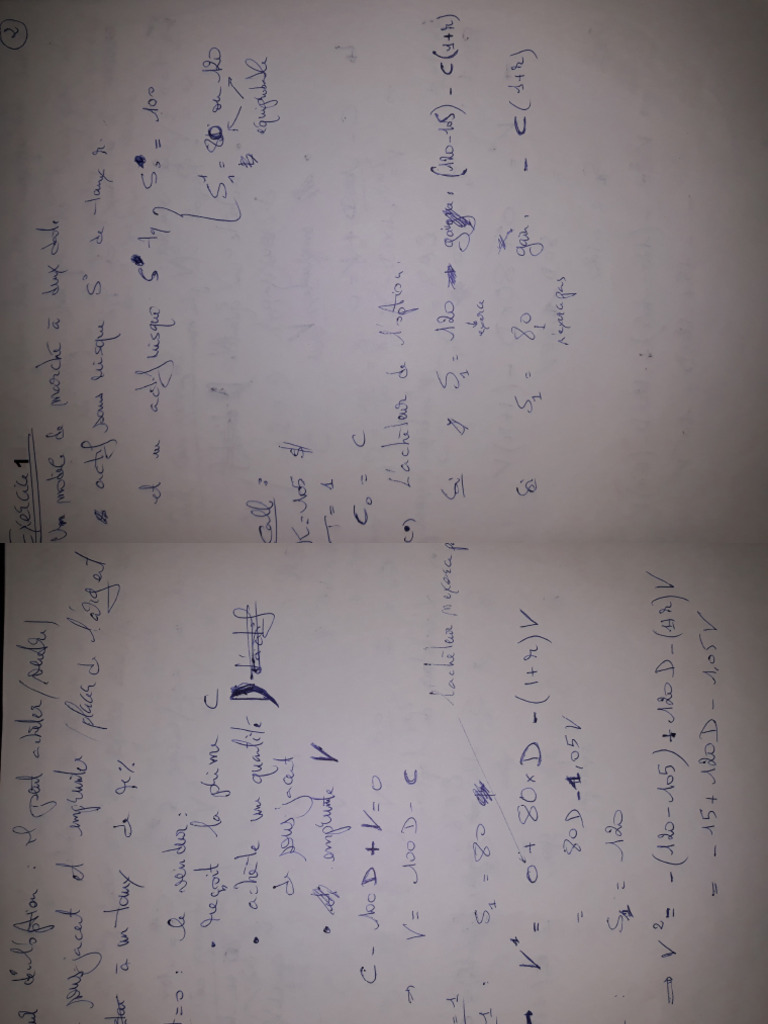 2
Exercice 1
Un modèle de marché à deux dates
actif sans risque S° de taux r
et un actif risqué S tq S₀ = 100
S₁¹ = 80 ou 120
équiprobable
Call :
K = 105
T = 1
C₀ = C
L'acheteur de l'option.
Si S₁ = 120 gain : (120-105) - C(1+r)
exerce
Si S₁ = 80 gain : - C(1+r)
n'exerce pas
de l'option : il peut acheter/vendre
sous jacent et emprunter /placer de l'argent
à un taux de r%
t=0 : le vendeur :
• reçoit la prime C
• achète une quantité D
de sous jacent
• emprunte V
C - 100D + V = 0
⇒ V = 100D - C
S₁ = 80
l'acheteur n'exerce p
V¹ = 0 + 80×D - (1+r)V
= 80D - 1,05V
S₁ = 120
⇒ V² = -(120-105) + 120D - (1+r)V
= -15 + 120D - 1,05V